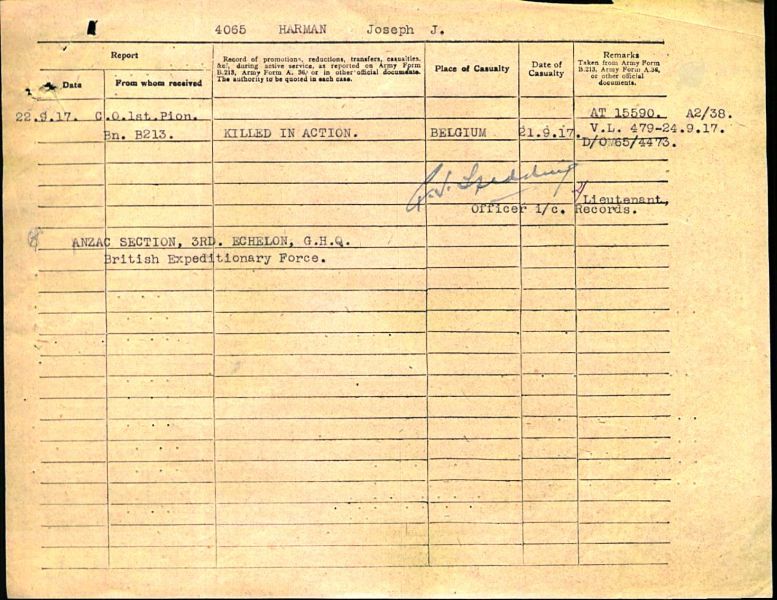 4065 HARMAN Joseph J.
Report
Date
From whom received
Record of promotions, reductions, transfers, casualties,
&c., during active service, as reported on Army Form
B.213, Army Form A. 36, or in other official documents.
The authority to be quoted in each case.
Place of Casualty
Date of
Casualty
Remarks
Taken from Army Form
B.213, Army Form A.36,
or other official
documents.
22.9.17. C.O.1st.Pion. AT 15590. A2/38.
Bn. B213. KILLED IN ACTION. BELGIUM 21.9.17. V.L. 479-24.9.17.
D/OM65/4473.
Spedding
Lieutenant,
Officer i/c. Records.
ANZAC SECTION, 3RD. ECHELON, G.H.Q.
British Expeditionary Force.